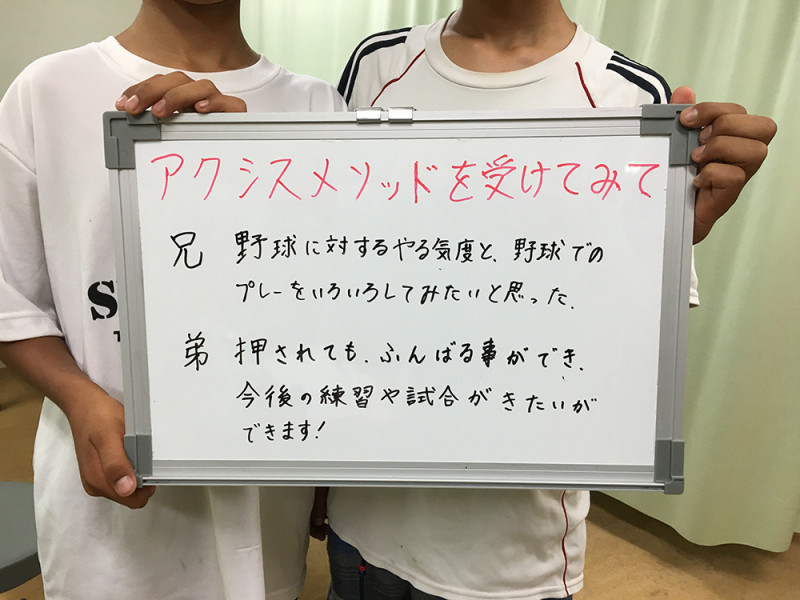 アクシスメソッドを受けてみて
兄 野球に対するやる気度と、野球での
プレーをいろいろしてみたいと思った。
弟 押されても、ふんばる事ができ、
今後の練習や試合がきたいが
できます!
S
T